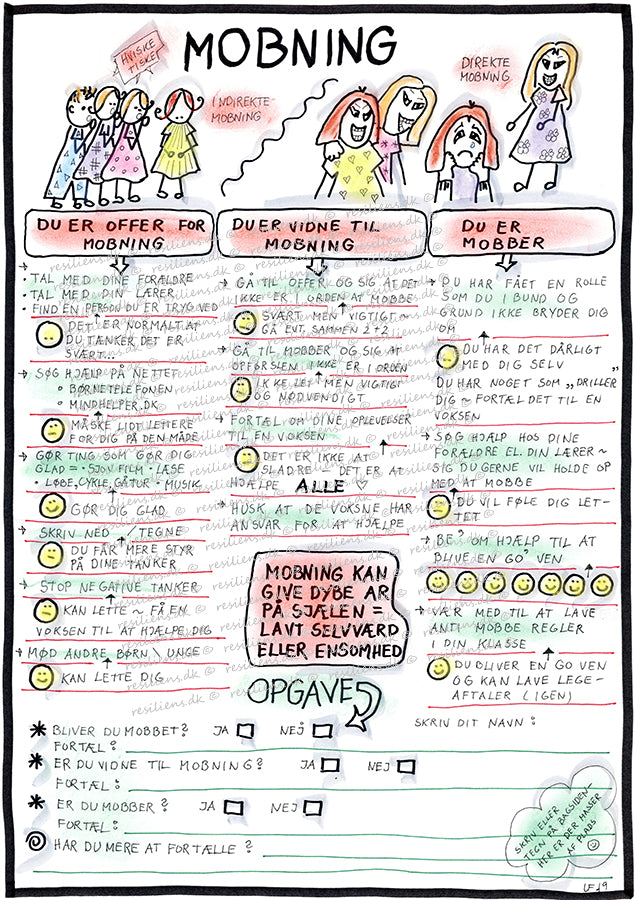 MOBNING
HVISKE
TISKE
INDIREKTE
MOBNING
DIREKTE
MOBNING
DU ER OFFER FOR
MOBNING
TAL MED DINE FORÆLDRE
TAL MED DIN LÆRER
FIND EN PERSON DU ER TRYG VED
DET ER NORMALT AT
DU TÆNKER DET ER
SVÆRT...
SØG HJÆLP PÅ NETTET
BØRNETELEFONEN
MINDHELPER.DK
MÅSKE LIDT LETTERE
FOR DIG PÅ DEN MÅDE
GØR TING SOM GØR DIG
GLAD = SJOV FILM • LÆSE
• LØBE, CYKLE, GÅTUR • MUSIK
GØR DIG GLAD
SKRIV NED / TEGNE
DU FÅR MERE STYR
PÅ DINE TANKER
STOP NEGATIVE TANKER
KAN LETTE ~ FÅ EN
VOKSEN TIL AT HJÆLPE DIG
MØD ANDRE BØRN \ UNGE
KAN LETTE DIG
DU ER VIDNE TIL
MOBNING
GÅ TIL OFFER OG SIG AT DET
IKKE ER I ORDEN AT MOBBE
SVÆRT MEN VIGTIGT ~
GÅ EVT. SAMMEN 2+2
GÅ TIL MOBBER OG SIG AT
OPFØRSLEN IKKE ER I ORDEN
IKKE LET MEN VIGTIGT
OG NØDVENDIGT
FORTÆL OM DINE OPLEVELSER
TIL EN VOKSEN
DET ER IKKE AT
SLADRE ~ DET ER AT
HJÆLPE ALLE ♡
HUSK AT DE VOKSNE HAR
ANSVAR FOR AT HJÆLPE
MOBNING KAN
GIVE DYBE AR
PÅ SJÆLEN =
LAVT SELVVÆRD
ELLER ENSOMHED
DU ER
MOBBER
DU HAR FÅET EN ROLLE
SOM DU I BUND OG
GRUND IKKE BRYDER DIG
OM
DU HAR DET DÅRLIGT
MED DIG SELV
DU HAR NOGET SOM „DRILLER”
DIG ~ FORTÆL DET TIL EN
VOKSEN
SØG HJÆLP HOS DINE
FORÆLDRE EL. DIN LÆRER ~
SIG DU GERNE VIL HOLDE OP
MED AT MOBBE
DU VIL FØLE DIG LET-
TET
BE' OM HJÆLP TIL AT
BLIVE EN GO' VEN
VÆR MED TIL AT LAVE
ANTI MOBBE REGLER
I DIN KLASSE
DU BLIVER EN GO VEN
OG KAN LAVE LEGE-
AFTALER (IGEN)
OPGAVE
SKRIV DIT NAVN:
* BLIVER DU MOBBET? JA NEJ
FORTÆL:
* ER DU VIDNE TIL MOBNING? JA NEJ
FORTÆL:
* ER DU MOBBER? JA NEJ
FORTÆL:
HAR DU MERE AT FORTÆLLE?
SKRIV ELLER
TEGN PÅ BAGSIDEN-
HER ER DER MASSER
AF PLADS
resiliens.dk ©